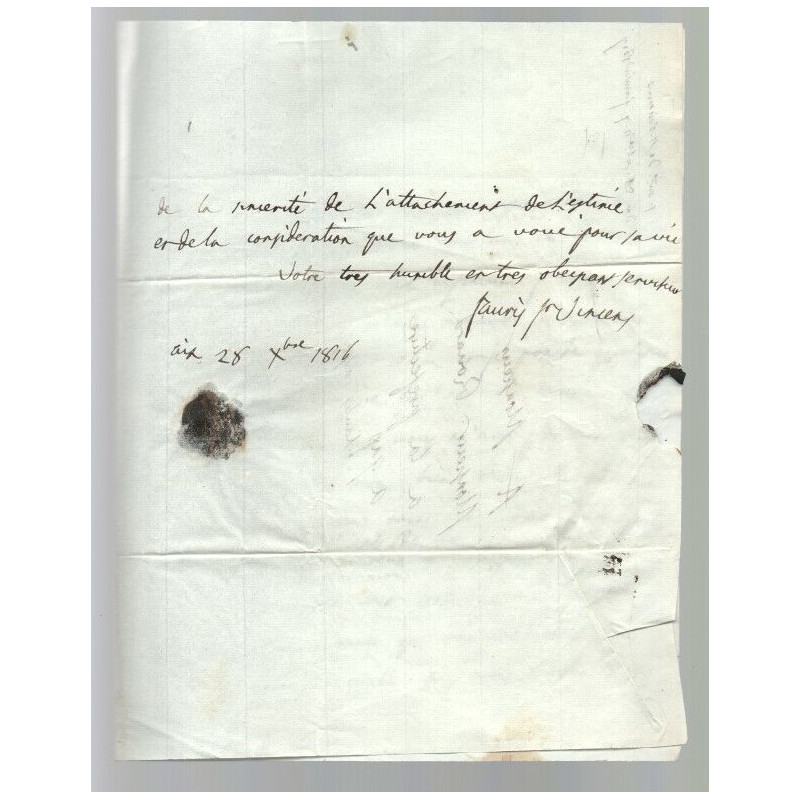 de la sincerité de L'attachement de L'estime
et de la consideration que vous a voué pour sa vie
Votre tres humble et tres obeissant serviteur
fauris st Vincens
aix 28 Xbre 1816